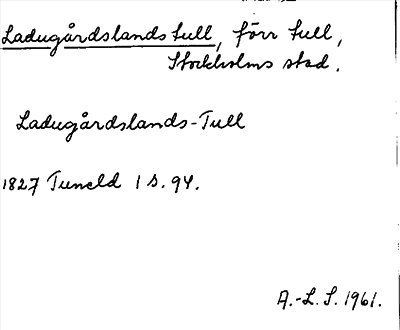 Ladugårdslandstull, förr tull,
Stockholms stad.
Ladugårdslands-Tull
1827 Tuneld 1 s. 94.
A.-L. S. 1961.